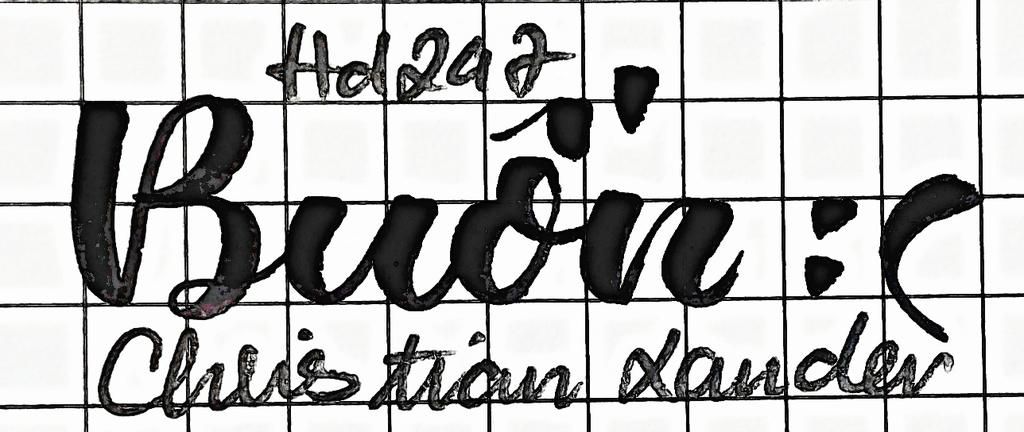 Hd247
Buồn :(
Christian xander